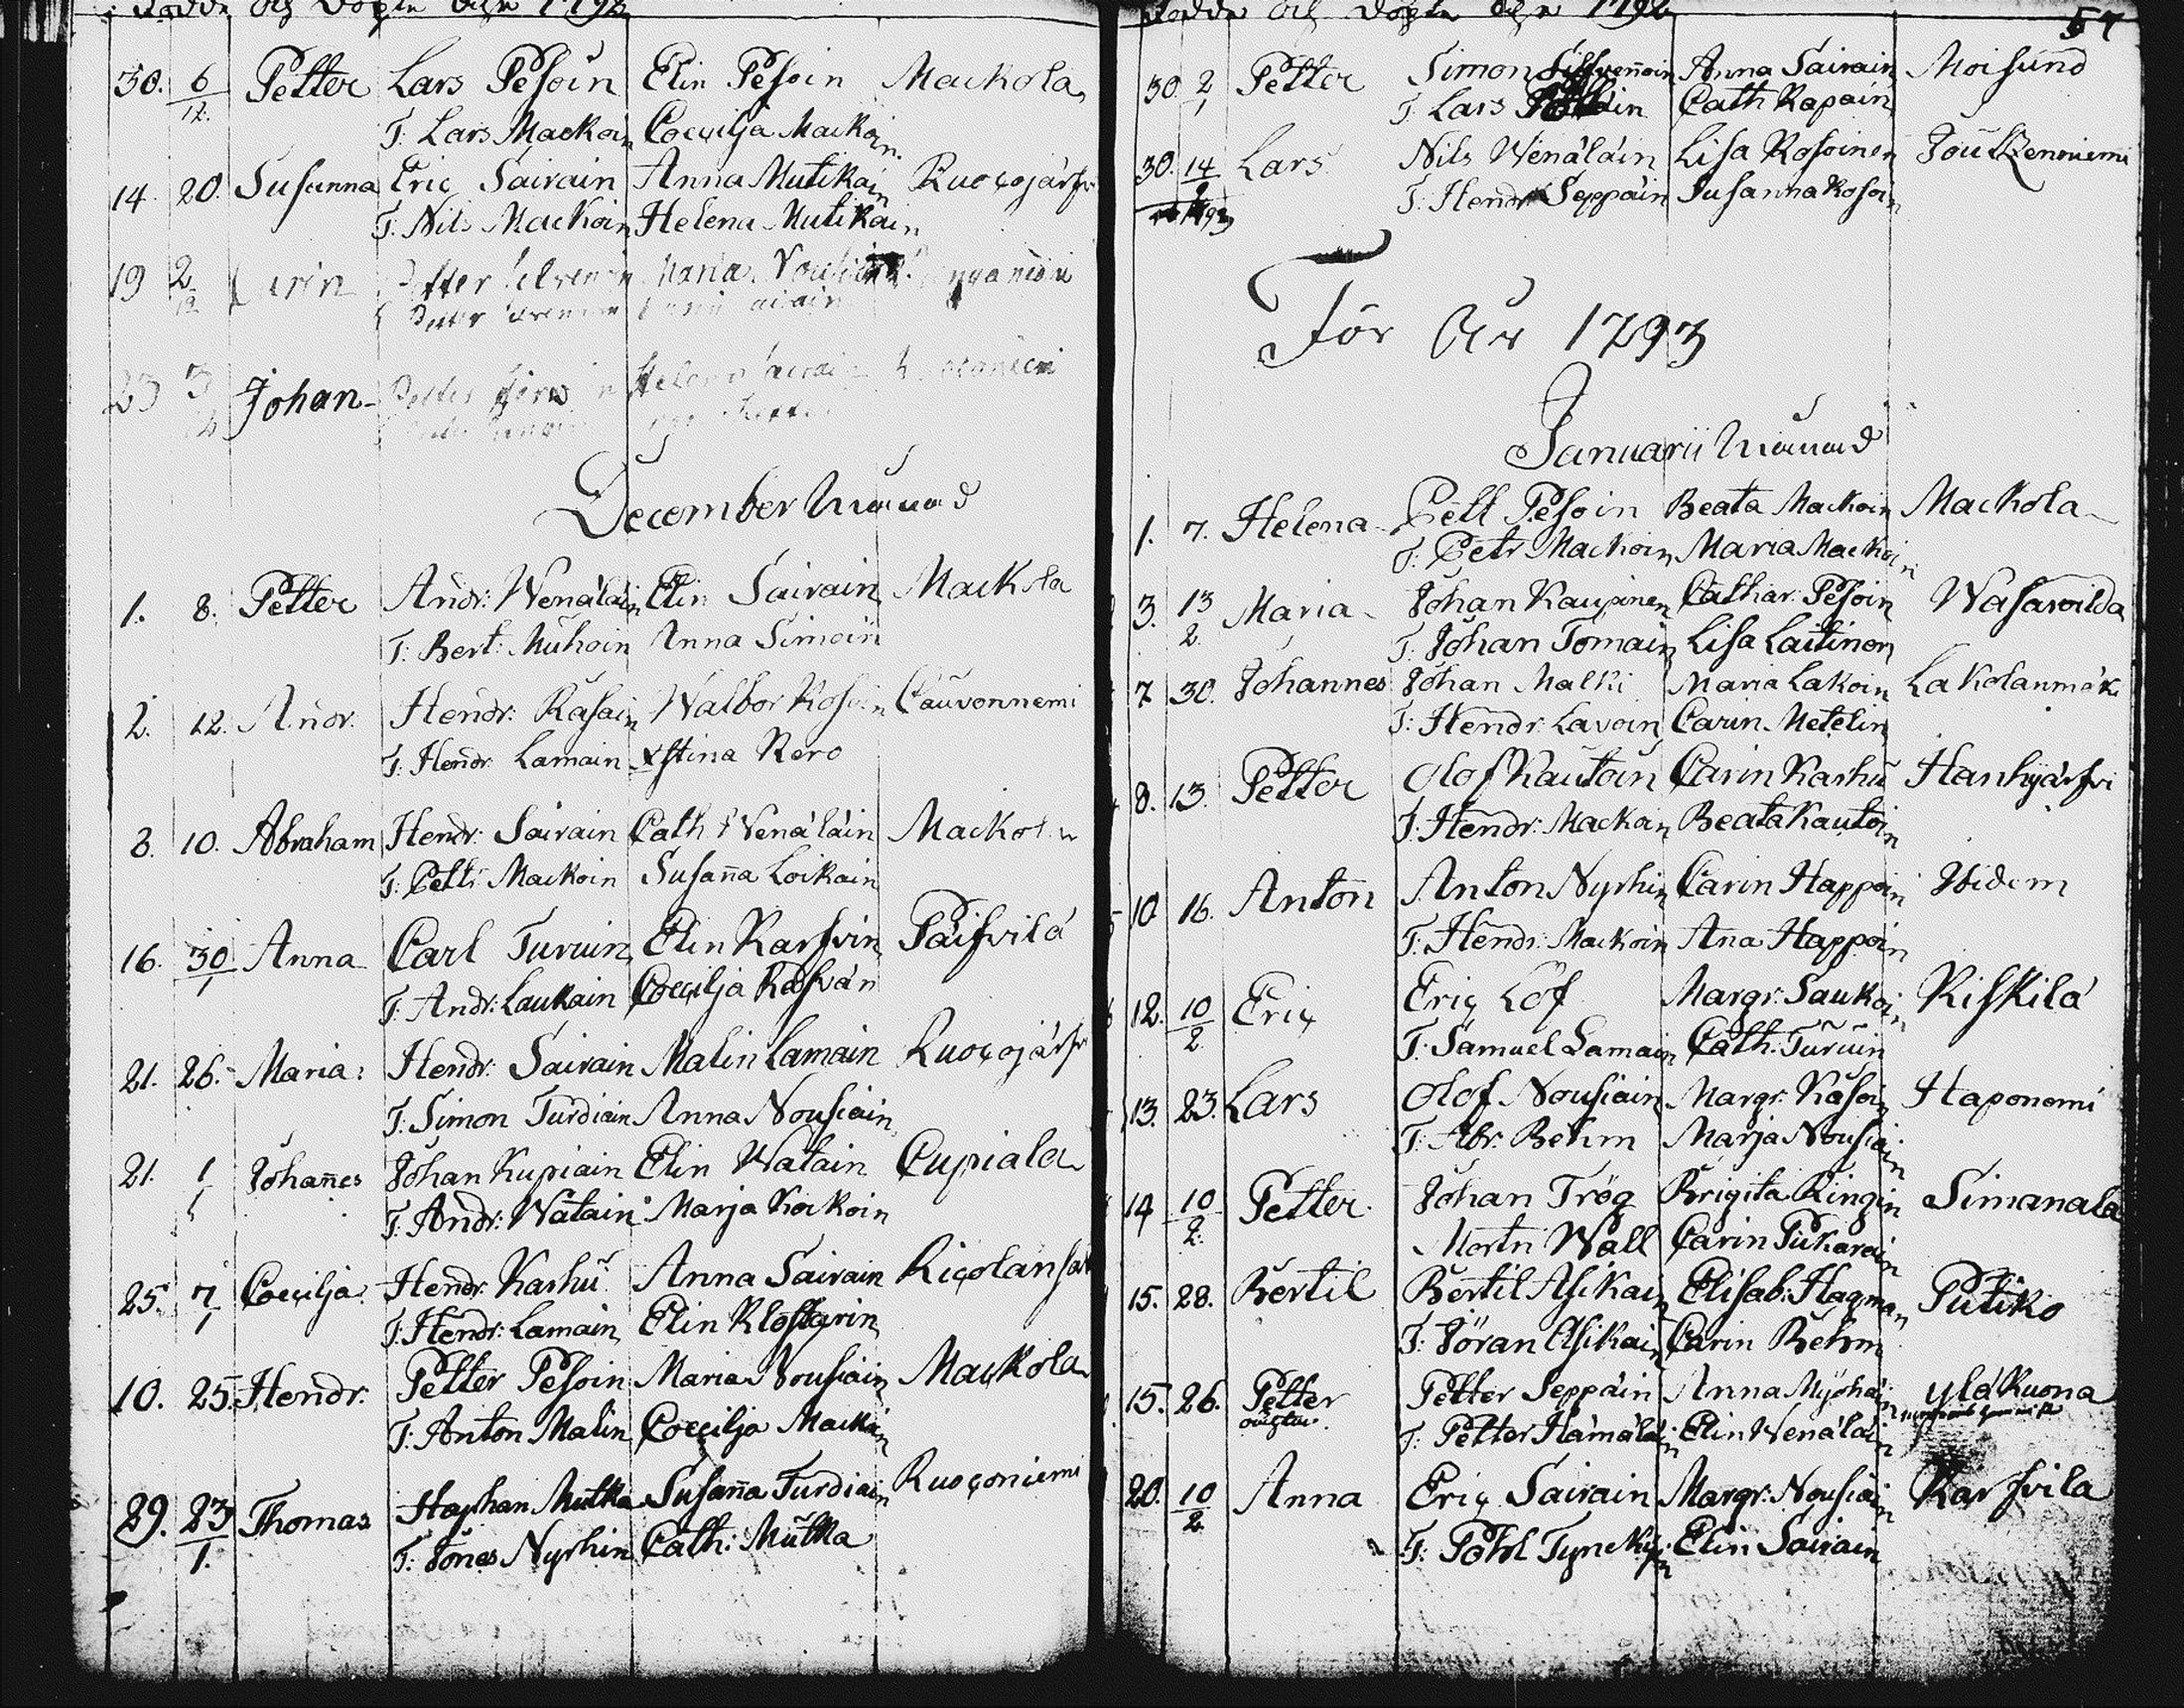 Födde och Döpte Åhr 1792
30. 6/12. Petter Lars Pesoin Elin Pesoin Mackola
T: Lars Mackoin Coecilja Mackoin
14. 20. Susanna Eric Sairain Anna Mutikain Ruocojärfvi
T: Nils Mackoin Helena Mutikain
19 2/12 Carin Petter Maria
Petter
23 3/12 Johan Petter Helena
December Månad
1. 8. Petter Andr: Wenäläin Elin Sairain Mackola
T: Bert: Muhoin Anna Simoin
2. 12. Andr. Hendr: Räsäin Walbor Kosoin Cauvonnemi
T: Hendr: Lamain Xstina Rero
8. 10. Abraham Hendr: Sairain Cath: Wenäläin Mackola
T: Pett: Mackoin Susaña Loikain
16. 30/1 Anna Carl Turuin Elin Karfvin Päifvilä
T: Andr: Laukain Coecilja Räsvän
21. 26. Maria: Hendr: Sairain Malin Lamain Ruocojärfvi
T: Simon Turdiain Anna Nousiain
21. 1/1 Johañes Johan Kupiain Elin Watain Cupiala
T: Andr: Watain Marja Koikoin
25. 7/1 Coecilja Hendr. Karhu Anna Sairain Ricolansa
T: Hendr: Lamain Elin Klöfgrin
10. 25. Hendr. Petter Pesoin Maria Nousiain Mackola
T: Anton Malin Coecilja Mackoin
29. 23/1. Thomas Stayhan Mutka Susaña Turdiain Ruoconiemi
T: Jönes Nyrhin Cath: Mutka
Födde och Döpte Åhr 1792
57
30. 2/1 Petter Simon Anna Sairain Moisund
T: Lars Cath Kapain
30. 14/2 1793 Lars Nils Wenäläin Lisa Kosoinen Joutzenniemi
T: Hendr Seppäin Susanna Kosoin
För År 1793
Januarii Månad
1. 7. Helena Pett Pesoin Beata Mackoin Mackola
T: Petr Mackoin Maria Mackoin
3. 13/2 Maria Johan Kaupinen Cathar. Pesoin Wasawilda
T: Johan Tomain Lisa Laitinen
7 30. Johannes Johan Malki Maria Lakoin Lakolanmäki
T: Hendr. Lavoin Carin Metelin
8. 13. Petter Olof Kautoin Carin Karhu Hanhijärfvi
T: Hendr: Mackoin Beata Kautoin
10 16. Anton Anton Nyrhin Carin Happoin Ibidem
T: Hendr: Mackoin Ana Happoin
12. 10/2. Eric Eric Löf Margr: Saukoin Riskilä
T: Samuel Lamain Cath: Turuin
13. 23. Lars Olof Nousiain Margr: Käsoin Haponemi
T: Abr: Behm Marja Nousiain
14 10/2. Petter. Johan Trög Brigita Ringin Simanala
Mortn Wäll Carin Pukarain
15. 28. Bertil Bertil Asikain Elisab: Hagman Putiko
T: Jöran Asikain Carin Behm
15. 26. Petter Petter Seppäin Anna Myöhäin yläkuona
T: Petter Hämäläin Elin Wenäläin
20. 10/2. Anna Eric Sairain Margr: Nousiain Karfvila
T: Pohl Tynckyin Elin Sairain